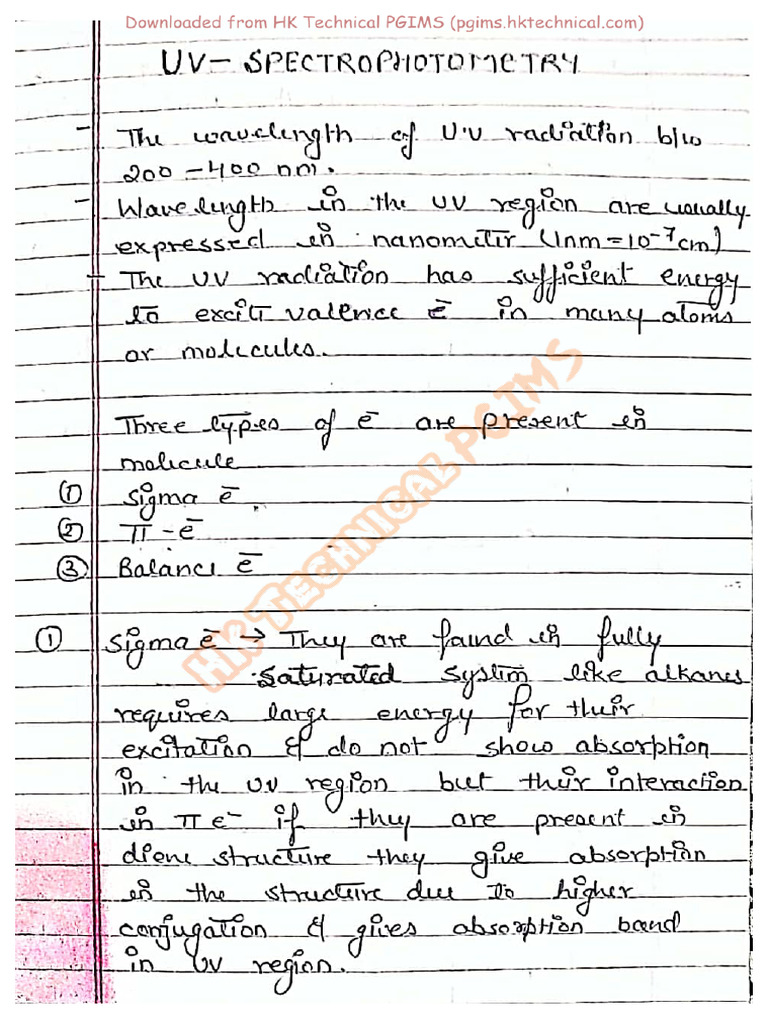 Downloaded from HK Technical PGIMS (pgims.hktechnical.com)
UV- SPECTROPHOTOMETRY
- The wavelength of U.V radiation b/w
200 - 400 nm.
- Wavelength in the UV region are usually
expressed in nanometir (1nm = 10⁻⁷cm)
- The UV radiation has sufficient energy
to excite valence e̅ in many atoms
or molecules.
Three types of e̅ are present in
molecule
① Sigma e̅
② π - e̅
③ Balance e̅
① Sigma e̅ → They are found in fully
saturated system like alkanes
requires large energy for their
excitation & do not show absorption
in the UV region but their interaction
in π e⁻ if they are present in
diene structure they give absorption
in the structure due to higher
conjugation & gives absorption band
in UV region.
HK TECHNICAL PGIMS